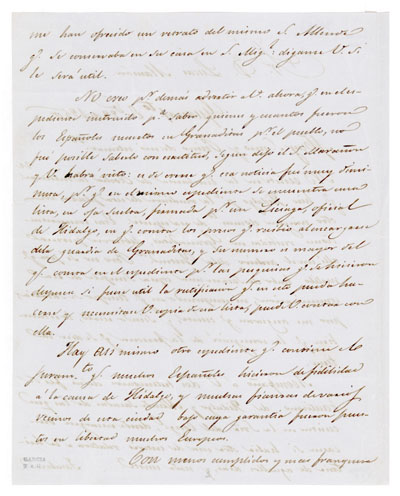 me han ofrecido un retrato del mismo S. Allende
q. se conservaba en su casa en S. Mig.l: digame V. si
le será util.
No creo p.r demás advertir a V. ahora, q. en el es-
pediente instruido p.a saber quienes y cuantos fueron
los Españoles muertos en Granaditas p.r el pueblo, no
fué posible saberlo con esactitud, segun dijo el S. Marañon
y V. habrá visto: es de creer q. esa noticia fué muy dimi-
nuta, p.s q. en el mismo espediente se encuentra una
lista, en oja suelta, firmada p.r un Liceaga, oficial
de Hidalgo, en q. consta los presos q. recibió al encargarse
de la guardia de Granaditas, y su numero es mayor del
q. consta en el espediente p.r las pesquisas q. se hicieron
despues: si fuere util la rectificacion q. en esto pueda ha-
cerse, y necesitare V. copia de esa lista, puede V. contar con
ella.
Hay asi mismo otro espediente q. contiene el
juram.to q. muchos Españoles hicieron de fidelidad
a la causa de Hidalgo, y muchas fianzas de varios
vecinos de esta ciudad bajo cuya garantia fueron pues-
tos en libertad muchos Europeos.
Con menos cumplidos y mas franqueza